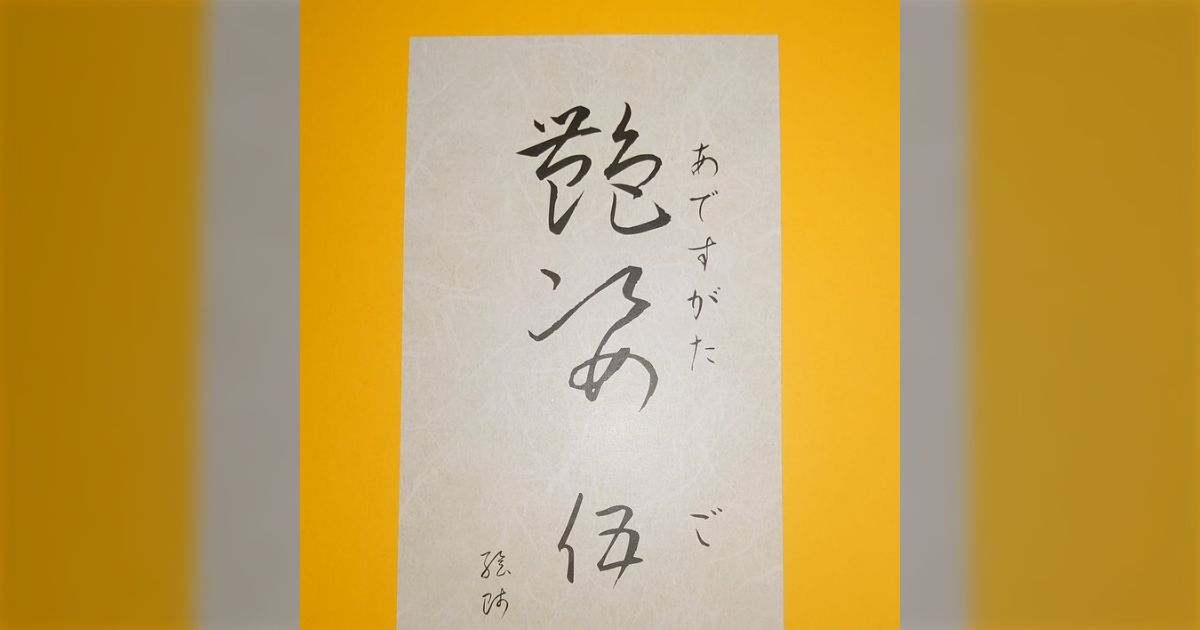 あですがた　ご
艶姿　伍
絵師